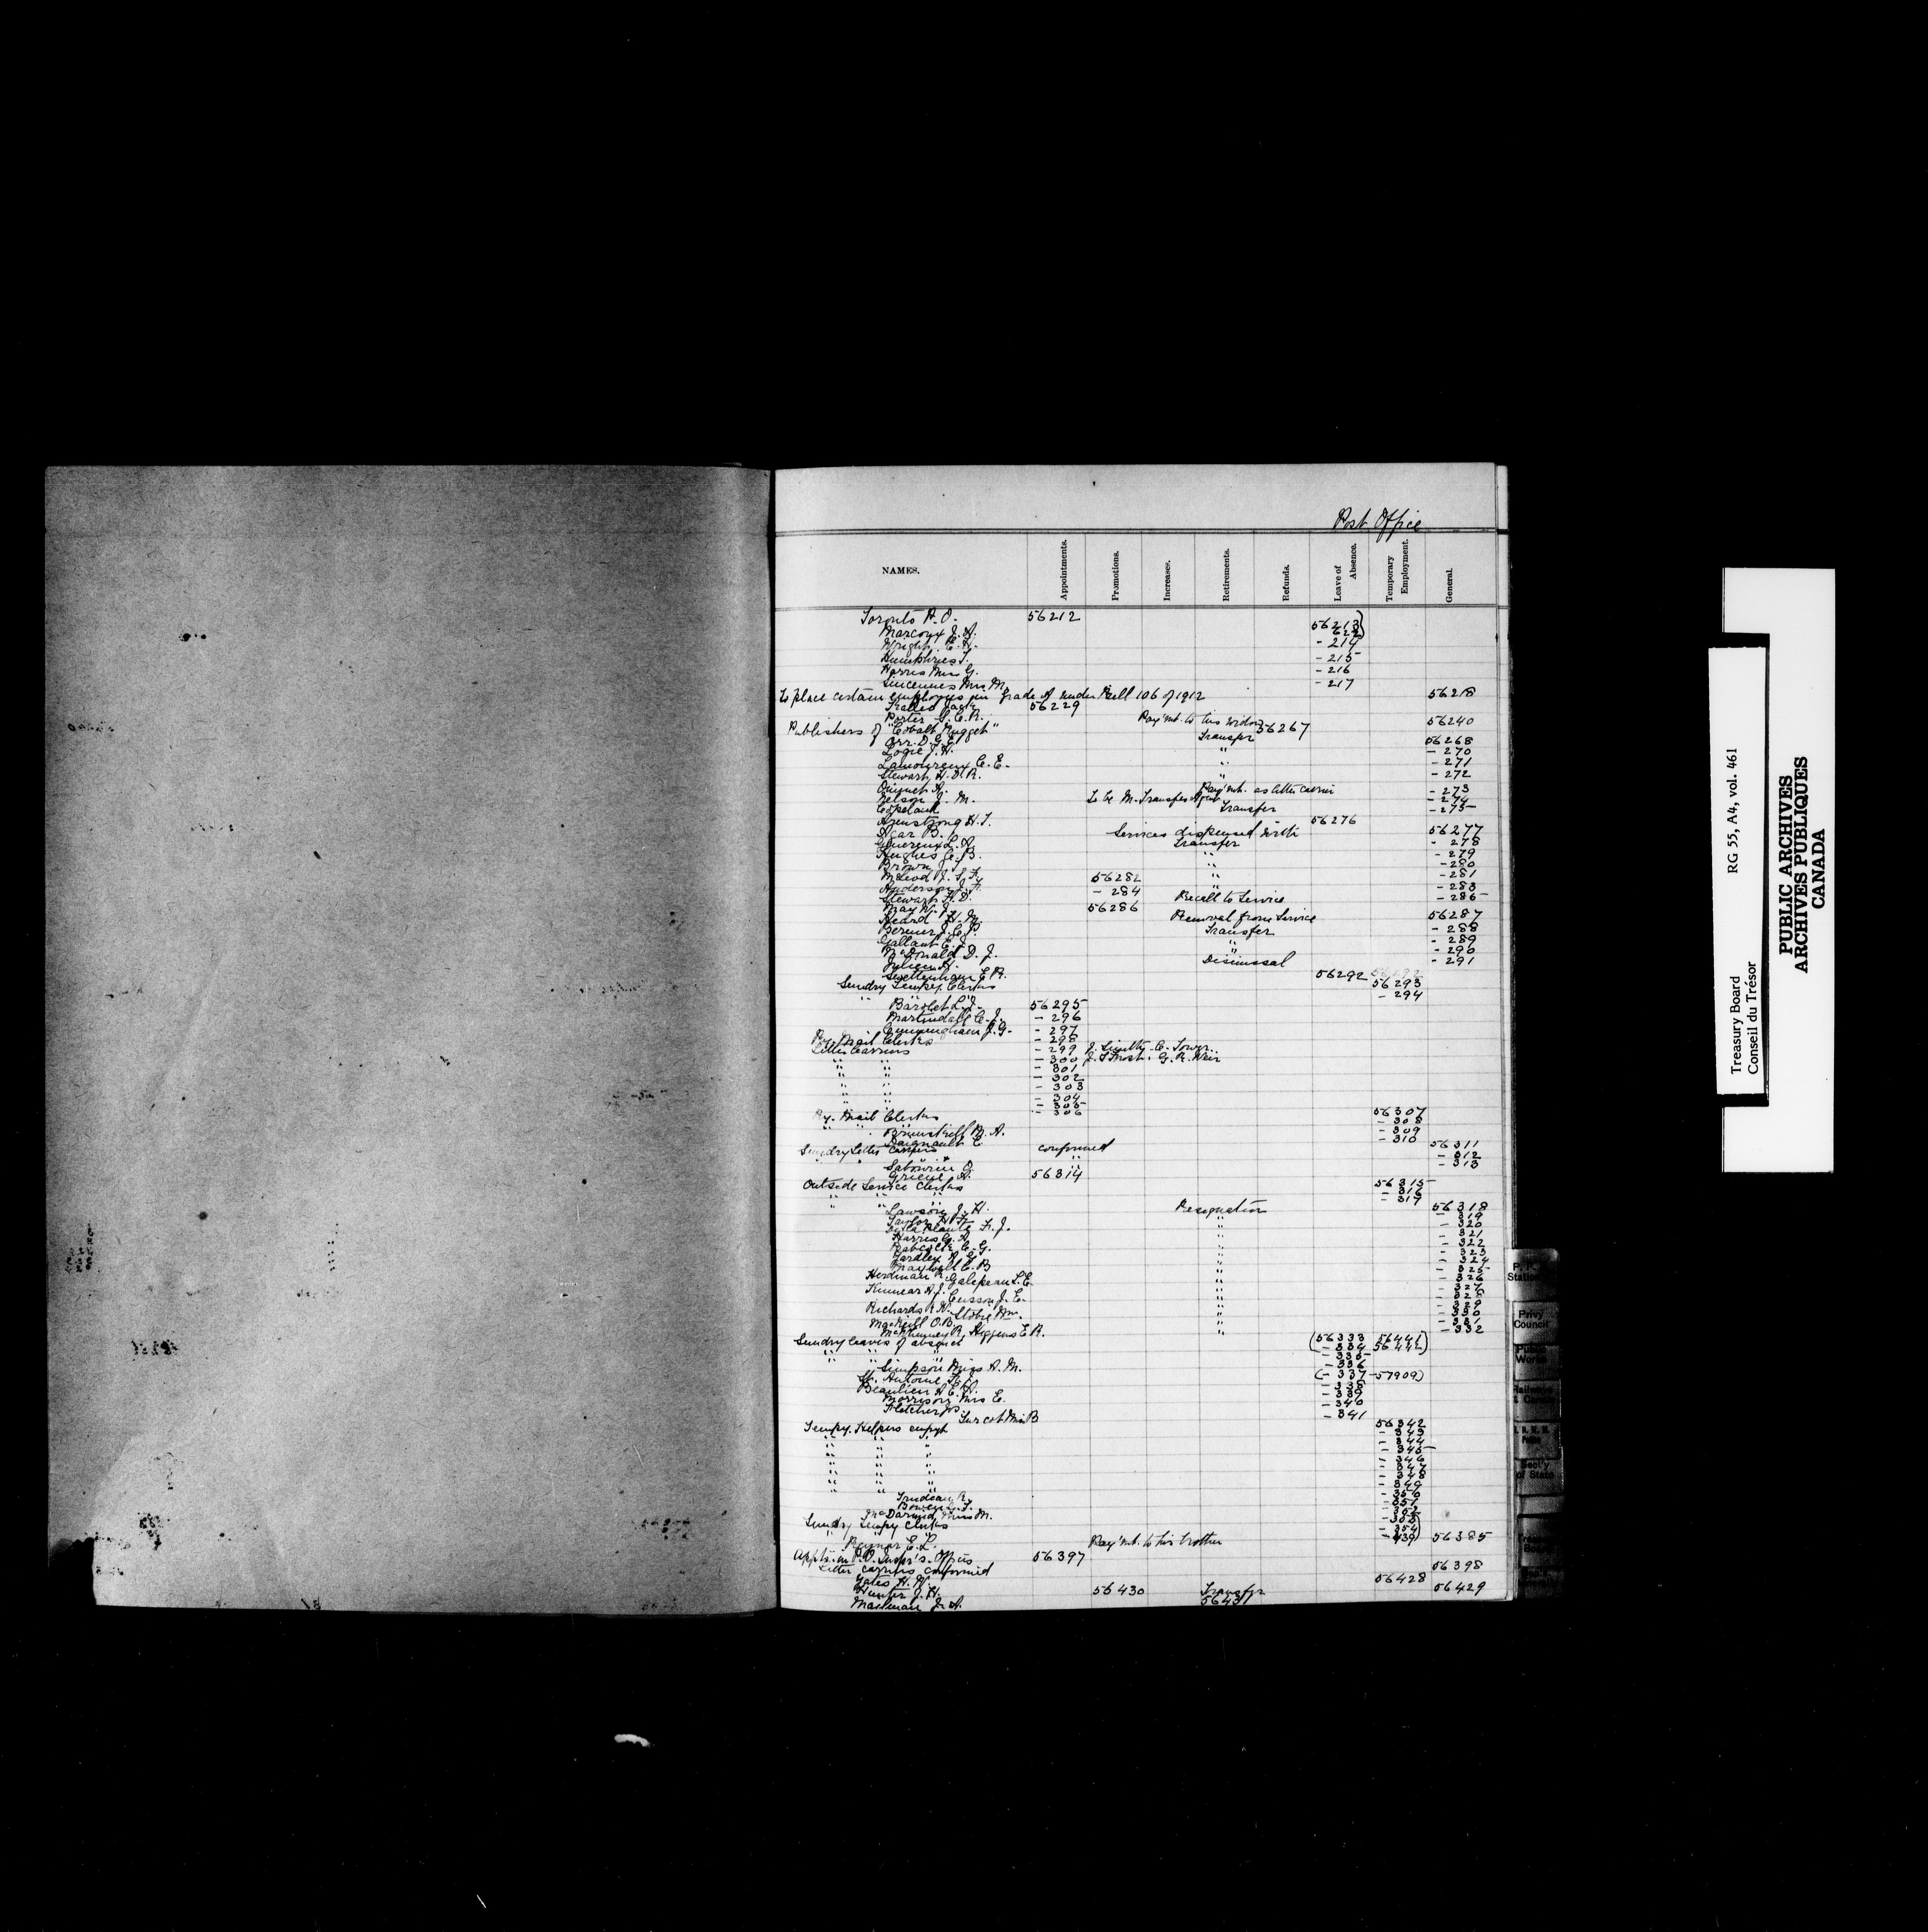 Post Office
NAMES. Appointments. Promotions. Increases. Retirements. Refunds. Leave of Absence. Temporary Employment. General.
Toronto P.O. 56212
Marcoux J. A. 56213)
Wright, E. - 214
Humphries T. - 215
Harris Miss G. - 216
Miss M. - 217
To place certain employees in grade under Bill 106 of 1912 56218
56229
Porter G. E. R. Pay'mt. to his widow 56240
Publishers of "Cobalt Nugget" 56267
Orr. D. G. E. Transfer 56268
Logie J. H. " - 270
Lamoureux C. E. " - 271
Stewart, H. D. R. " - 272
Ouimet A. Pay'mt. as letter carrier - 273
Nelson J. M. To be M. Transfer Agent - 274
Copeland Transfer - 275
Armstrong H. T. 56276
Agar B. Services dispensed with 56277
Genereux L. A. Transfer - 278
Hughes C. B. " - 279
Brown J. " - 280
McLeod J. S. 56282 " - 281
Anderson J. - 284 " - 283
Stewart H. D. Recall to Service - 285
May W. J. 56286
Heard H. M. Removal from Service 56287
Bernier J. C. P. Transfer - 288
Gallant E. J. " - 289
McDonald D. J. " - 290
Julien Dismissal - 291
Swettenham E. R. 56292
Sundry Tempy. Clerks 56293
" - 294
Barolet L. J. 56295
Martindale C. J. - 296
Cunningham J. G. - 297
Ry. Mail Clerks - 298
Letter Carriers - 299 J. Smith - C. Tower
" " - 300 J. S. Frost. G. R. Weir
" " - 301
" " - 302
" " - 303
" " - 304
" " - 305
- 306
Ry. Mail Clerks 56307
" " - 308
M. A. - 309
Daigneault E. - 310
Sundry Letter Carriers confirmed 56311
" " - 312
Sabourin O. " - 313
A. 56314
Outside Service Clerks 56315
" " " - 316
" " " - 317
Lawson J. H. Resignation 56318
Taylor H. " - 319
LaPlante F. J. " - 320
Harris G. A. " - 321
Babcock C. G. " - 322
Yardley A. G. " - 323
Maxwell C. B " - 324
Herdman R. Galipeau L. E. " - 325 - 326
Kinnear A. J. Cusson J. E. " - 327 - 328
Richards R. H. Stobie Wm. " - 329 - 330
MacNeill O. B. " - 331
McKinney R. Higgins E. R. " - 332
Sundry leaves of absence (56333 56441)
" " " - 334 56442)
- 335
Simpson Miss A. M. - 336
St. Antoine (- 337 - 57909)
Beaulieu A. E. H. - 338
Morrison Miss E. - 339
Fletcher Jos. - 340
Turcot Miss B - 341
Tempy. Helpers empyt 56342
" " " - 343
" " " - 344
" " " - 345
" " " - 346
" " " - 347
" " " - 348
" " " - 349
Trudeau R. - 350
Bowen G. T. - 351
McDarmid, Miss M. - 352
Sundry Tempy Clerks - 353
" - 354)
Raymor E. L. Pay'mt. to his brother - 439) 56385
Appts in P. O. Insp'r's. Offices 56397
Letter carriers confirmed 56398
Yates H. W. 56428
Hunter J. H. 56430 Transfer 56429
Mailman J. A. 56431
P. P. & Station
Privy Council
Public Works
Railways & Canals
R. N. W. M. Police
Sect'y of State
Treasury Board
Conseil du Trésor
RG 55, A4, vol. 461
PUBLIC ARCHIVES
ARCHIVES PUBLIQUES
CANADA